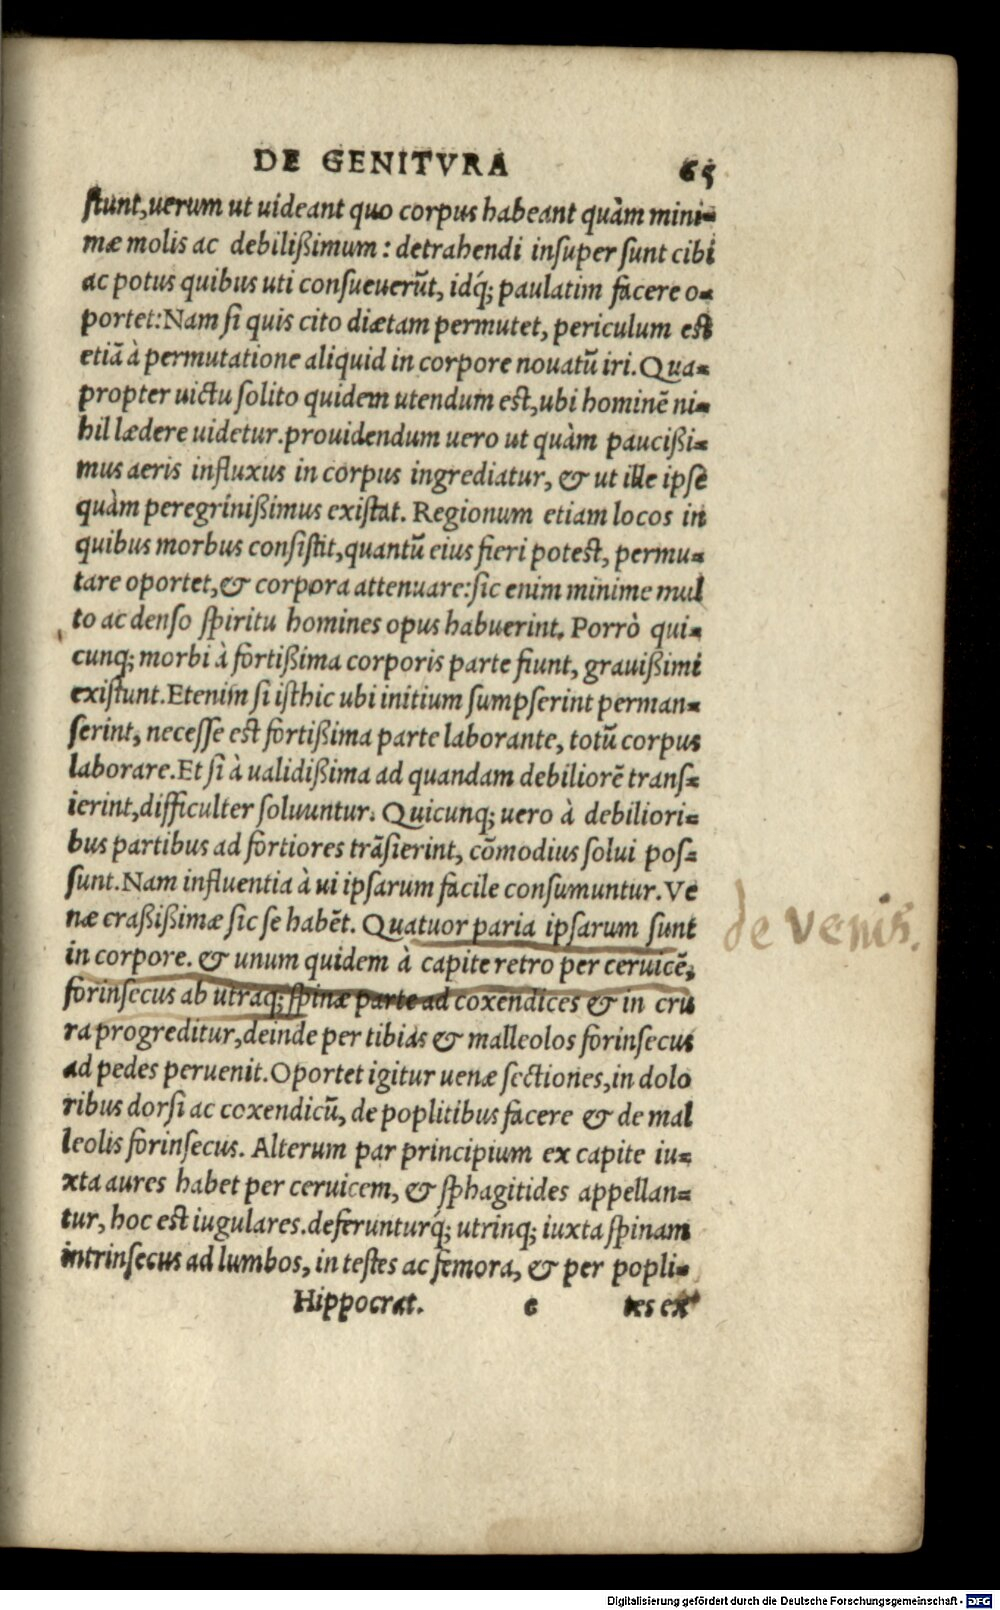 DE GENITVRA 65
stunt, uerum ut uideant quo corpus habeant quàm mini-
mæ molis ac debilißimum: detrahendi insuper sunt cibi
ac potus quibus uti consueuerūt, idq́; paulatim facere o-
portet: Nam si quis cito diætam permutet, periculum est
etiā à permutatione aliquid in corpore nouatū iri. Qua-
propter uictu solito quidem utendum est, ubi hominē ni-
hil lædere uidetur. prouidendum uero ut quàm paucißi-
mus aeris influxus in corpus ingrediatur, & ut ille ipse
quàm peregrinißimus existat. Regionum etiam locos in
quibus morbus consistit, quantū eius fieri potest, permu-
tare oportet, & corpora attenuare: sic enim minime mul
to ac denso spiritu homines opus habuerint. Porrò qui-
cunq; morbi à fortißima corporis parte fiunt, grauißimi
existunt. Etenim si isthic ubi initium sumpserint perman-
serint, necesse est fortißima parte laborante, totū corpus
laborare. Et si à ualidißima ad quandam debiliorē trans-
ierint, difficulter soluuntur. Quicunq; uero à debiliori-
bus partibus ad fortiores trāsierint, cōmodius solui pos-
sunt. Nam influentia à ui ipsarum facile consumuntur. Ve
næ craßißimæ sic se habēt. Quatuor paria ipsarum sunt
de venis.
in corpore. & unum quidem à capite retro per ceruicē,
forinsecus ab utraq; spinæ parte ad coxendices & in cru
ra progreditur, deinde per tibias & malleolos forinsecus
ad pedes peruenit. Oportet igitur uenæ sectiones, in dolo
ribus dorsi ac coxendicū, de poplitibus facere & de mal
leolis forinsecus. Alterum par principium ex capite iu-
xta aures habet per ceruicem, & sphagitides appellan-
tur, hoc est iugulares. deferunturq́; utrinq; iuxta spinam
intrinsecus ad lumbos, in testes ac femora, & per popli-
Hippocrat. e tes ex
Digitalisierung gefördert durch die Deutsche Forschungsgemeinschaft - DFG